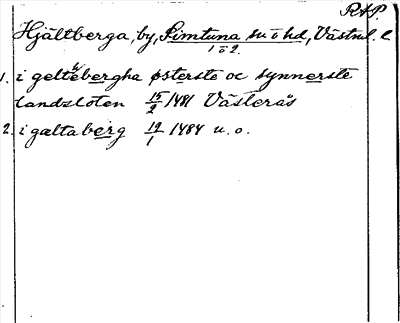 RAP.
Hjältberga, by, Simtuna sn o hd, Västml. l
1 o 2.
1. i geltebergha østerste oc synnerste
landzloten 15/2 1481 Västerås
2. i gæltaberg 19/1 1484 u. o.